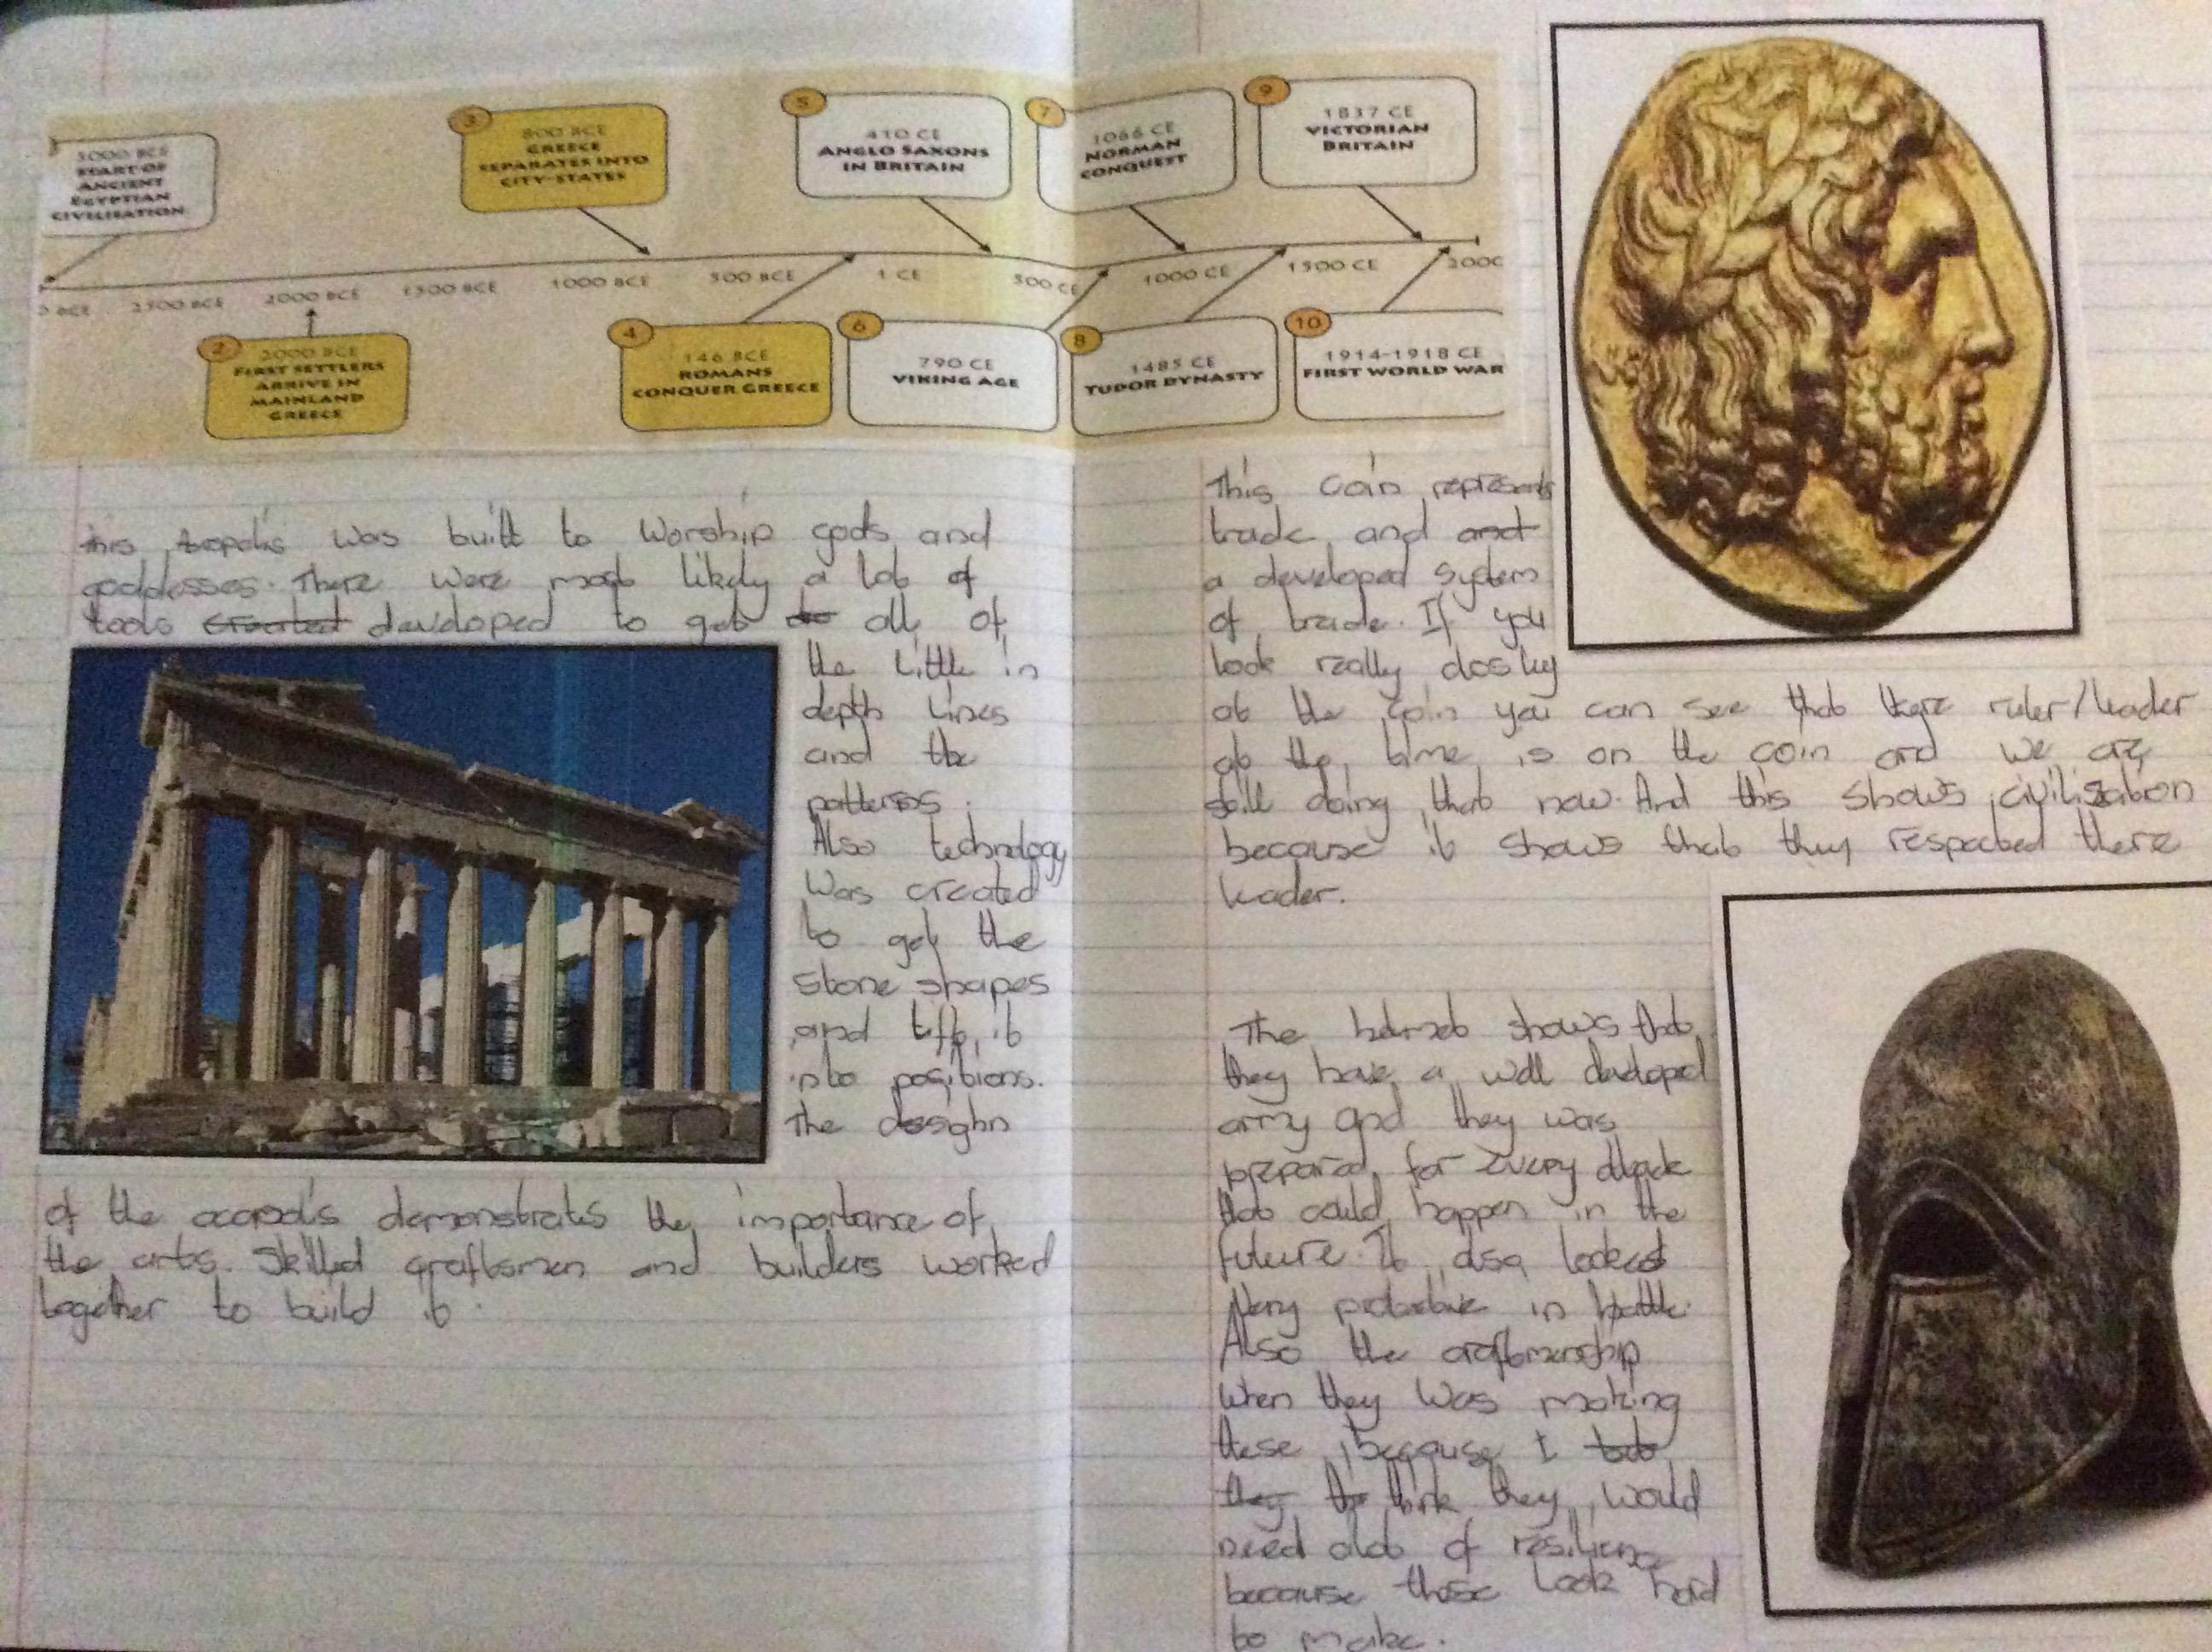 3000 BCE
START OF
ANCIENT
EGYPTIAN
CIVILISATION
3
800 BCE
GREECE
SEPARATES INTO
CITY-STATES
5
410 CE
ANGLO SAXONS
IN BRITAIN
7
1066 CE
NORMAN
CONQUEST
9
1837 CE
VICTORIAN
BRITAIN
BCE 2500 BCE 2000 BCE 1500 BCE 1000 BCE 500 BCE 1 CE 500 CE 1000 CE 1500 CE 2000
2
2000 BCE
FIRST SETTLERS
ARRIVE IN
MAINLAND
GREECE
4
146 BCE
ROMANS
CONQUER GREECE
6
790 CE
VIKING AGE
8
1485 CE
TUDOR DYNASTY
10
1914-1918 CE
FIRST WORLD WAR
this was built to worship gods and
goddesses. There were most likely a lot of
tools created developed to get all of
the little in
depth lines
and the
patterns.
Also technology
was created
to get the
stone shapes
and lift it
into positions.
The desighn
of the acropolis demonstrates the importance of
the arts. Skilled craftsmen and builders worked
together to build it.
This coin represents
trade and and
a developed system
of trade. If you
look really closley
at the coin you can see that there ruler/leader
at the time is on the coin and we are
still doing that now. And this shows civilisation
because it shows that they respected there
leader.
The helmet shows that
they have a well developed
army and they was
prepared for every attack
that could happen in the
future. It also looked
very protective in battle.
Also the craftmenship
when they was making
these because I
they think they would
need alot of resilience
because these look hard
to make.